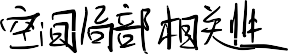 空间局部相关性